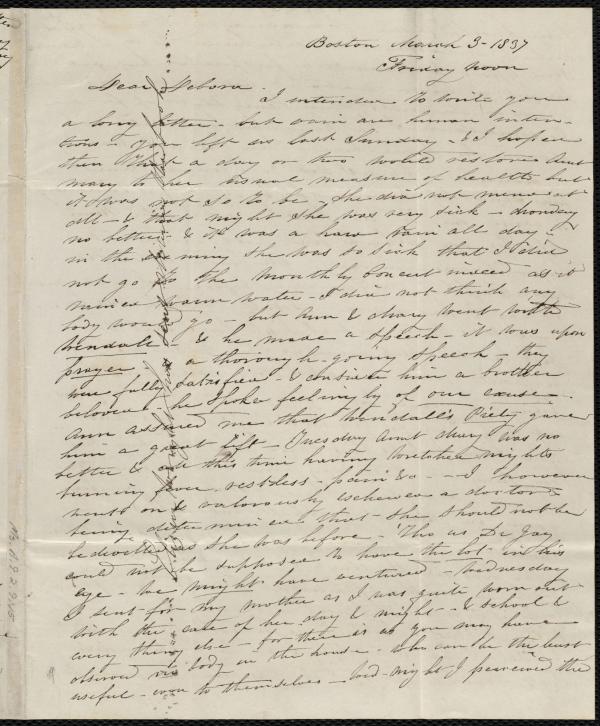 Boston March 3 - 1837
Friday noon
Dear Debora.
I intended to write you
a long letter - but vain are human inten-
tions - you left us last Sunday - & I hoped
then that a day or two would restore Aunt
mary to her usual measure of health but
it was not so to be - she did not mend at
all - & that night she was very sick - monday
no better - & it was a hard rain all day -
in the evening she was so sick that I did
not go to the monthly concert indeed as it
rained warm water - I did not think any
body would go - but Ann & Mary went with
Wendall - & he made a speech - it was upon
prayer a thorough-going speech - they
were fully satisfied - & consider him a brother
beloved - he spoke feelingly of our cause -
Ann assured me that Wendall's Piety gave
him a great lift - Tuesday Aunt Mary was no
better & all this time having wretched nights
burning fever - restless - pain &c - I however
went on & valorously eschewed a doctor -
being determined that she should not be
bedeviled as she was before - 'Tho as Dr Jay
could not be supposed to have the lot in his
eye - we might have ventured - Wednesday
I sent for my mother as I was quite worn out
with the care of her day & night - & school &
every thing else - for there is as you may have
observed no body in the house - who can be the least
useful - even to themselves - Wed-night I perceived the